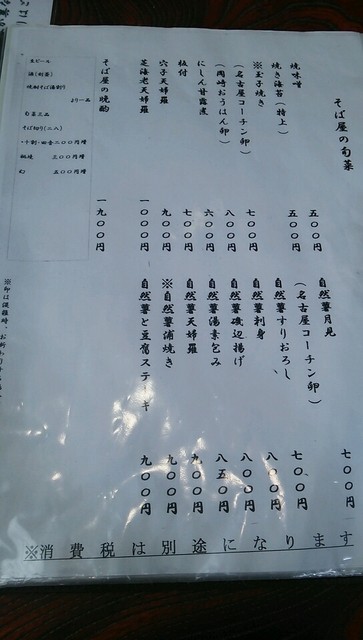 そば屋の旬菜
焼味噌 五〇〇円
焼き海苔(特上) 五〇〇円
※玉子焼き
(名古屋コーチン卵) 七〇〇円
(岡崎おうはん卵) 八〇〇円
にしん甘露煮 六〇〇円
板付 七〇〇円
穴子天婦羅 九〇〇円
芝海老天婦羅 一〇〇〇円
そば屋の晩酌 一九〇〇円
生ビール
酒(旬菜)
焼酎そば湯割り
より一品
旬菜三品
そば切り(二八)
・十割・田舎二〇〇円増
三〇〇円増
幻 五〇〇円増
自然薯月見
(名古屋コーチン卵) 七〇〇円
自然薯すりおろし 七〇〇円
自然薯刺身 八〇〇円
自然薯磯辺揚げ 八〇〇円
自然薯湯素包み 八五〇円
自然薯天婦羅 九〇〇円
※自然薯蒲焼き 九〇〇円
自然薯と豆腐ステーキ 九〇〇円
※印は混雑時、お断り
※消費税は別途になります